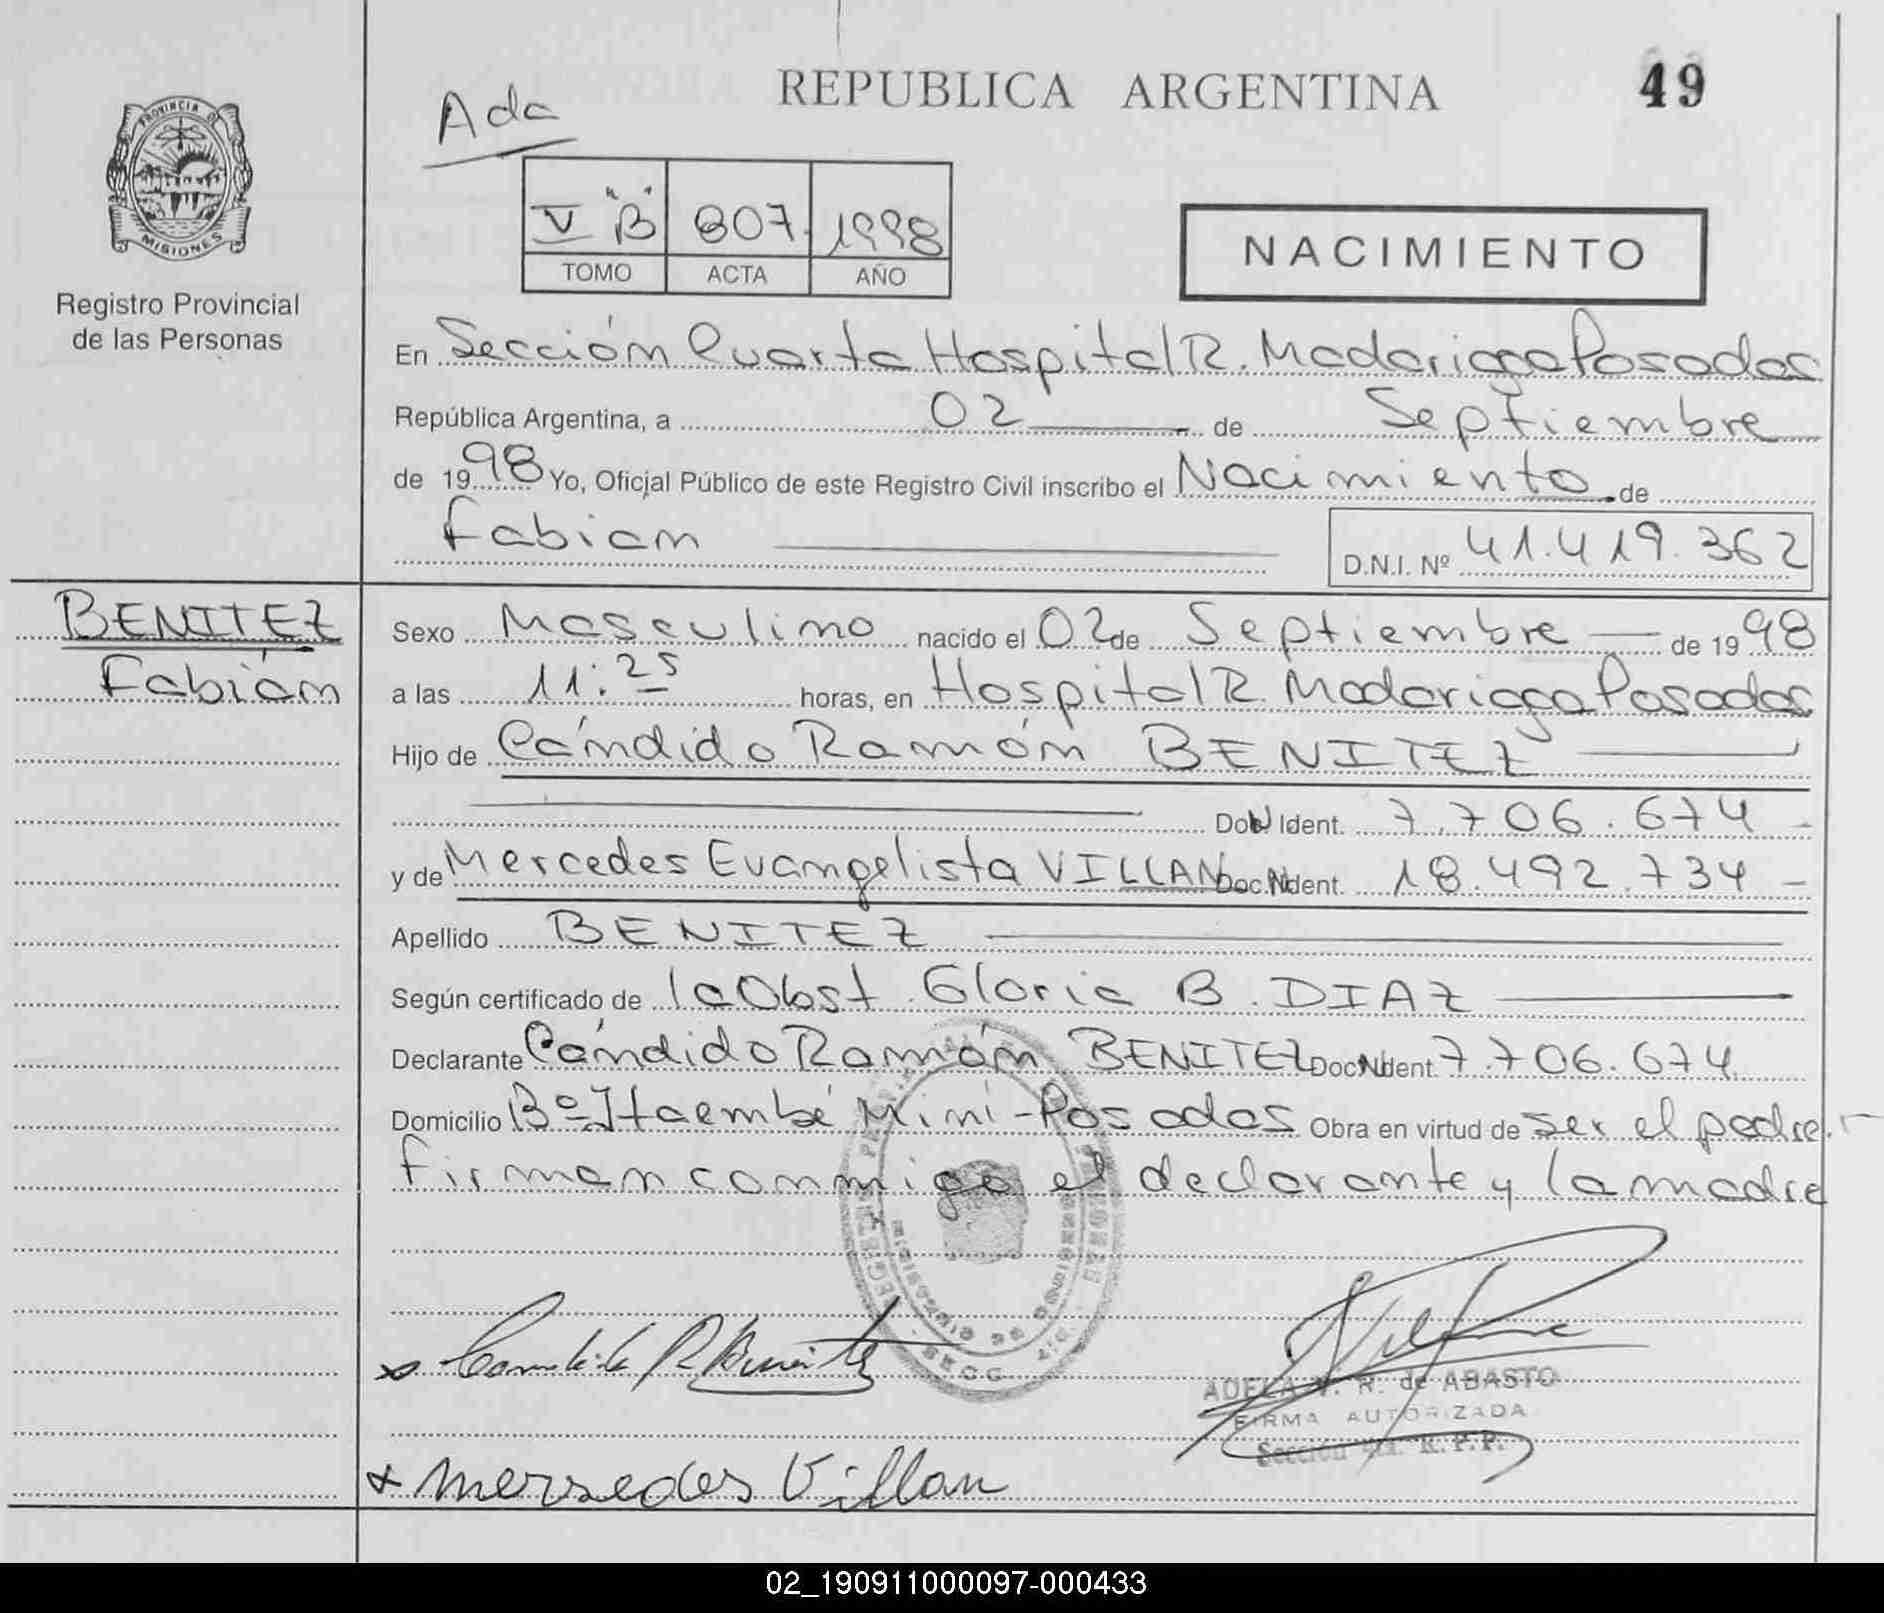 REPUBLICA ARGENTINA
49
Ada
PROVINCIA DE
MISIONES
Registro Provincial
de las Personas
V "B" 807. 1998
TOMO ACTA AÑO
NACIMIENTO
En Sección Cuarta Hospital R. Madariaga Posadas
República Argentina, a 02 de Septiembre
de 1998 Yo, Oficial Público de este Registro Civil inscribo el Nacimiento de
Fabian
D.N.I. Nº 41.419.362
BENITEZ
Fabián
Sexo Masculino nacido el 02 de Septiembre de 1998
a las 11:25 horas, en Hospital R. Madariaga Posadas
Hijo de Cándido Ramón BENITEZ
Ident. 7.706.674
y de Mercedes Evangelista VILLAN Doc. Ident. 18.492.734
Apellido BENITEZ
Según certificado de la Obst. Gloria B. DIAZ
Declarante Cándido Ramón BENITEZ Doc. Ident. 7.706.674
Domicilio Bº Itaembé Mini-Posadas Obra en virtud de ser el padre.
firman conmigo el declarante y la madre
R Benitez
ADELA V. R. de ABASTO
FIRMA AUTORIZADA
Sección R.P.P.
x Mersedes Villan
02_190911000097-000433